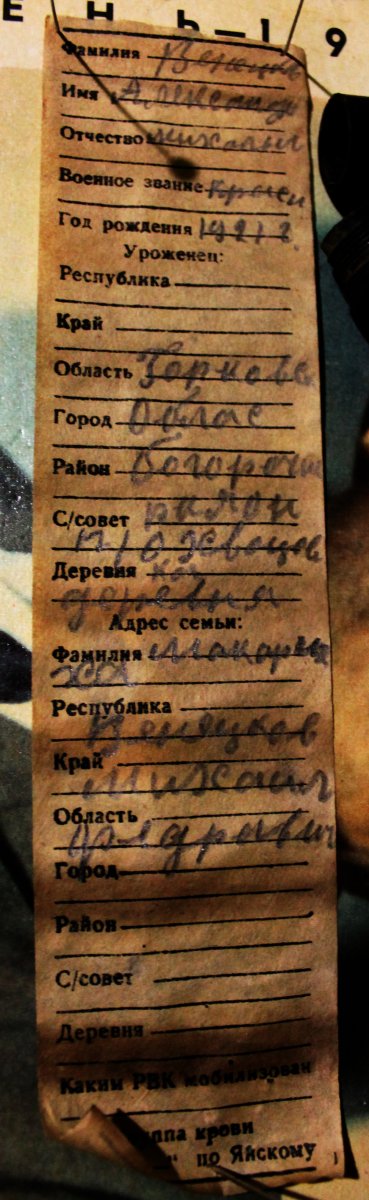 ЕНЬ—19
Фамилия Венецков
Имя Александр
Отчество Михайли
Военное звание Красн
Год рождения 1921 г.
Уроженец:
Республика
Край
Область Горков
Город Облас
Район богородс
С/совет район
Деревня
деревня
Адрес семьи:
Фамилия Макарих
ха
Республика
Венецков
Край
Михаил
Область
Федрович
Город
Район
С/совет
Деревня
Каким РВК мобилизован
ппа крови
по Яйскому